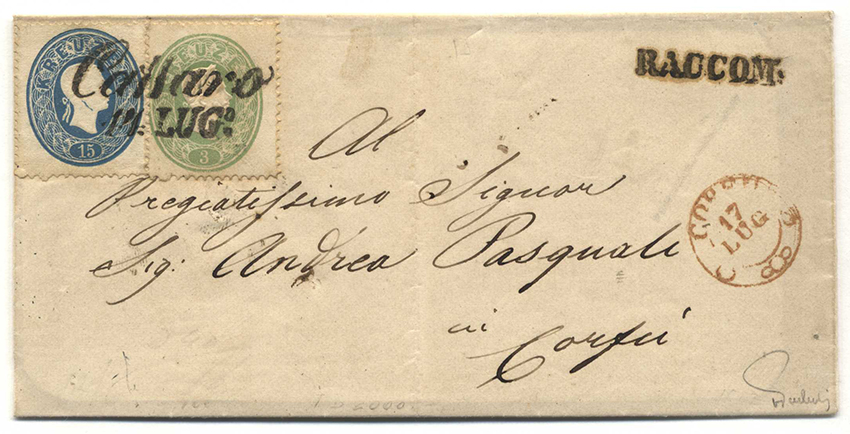 KREUZER
15
KREUZER
3
Cattaro
LUGº.
RACCOM:
Al
Pregiatissimo Signor
Sig: Andrea Pasquali
in Corfù
17
LUG